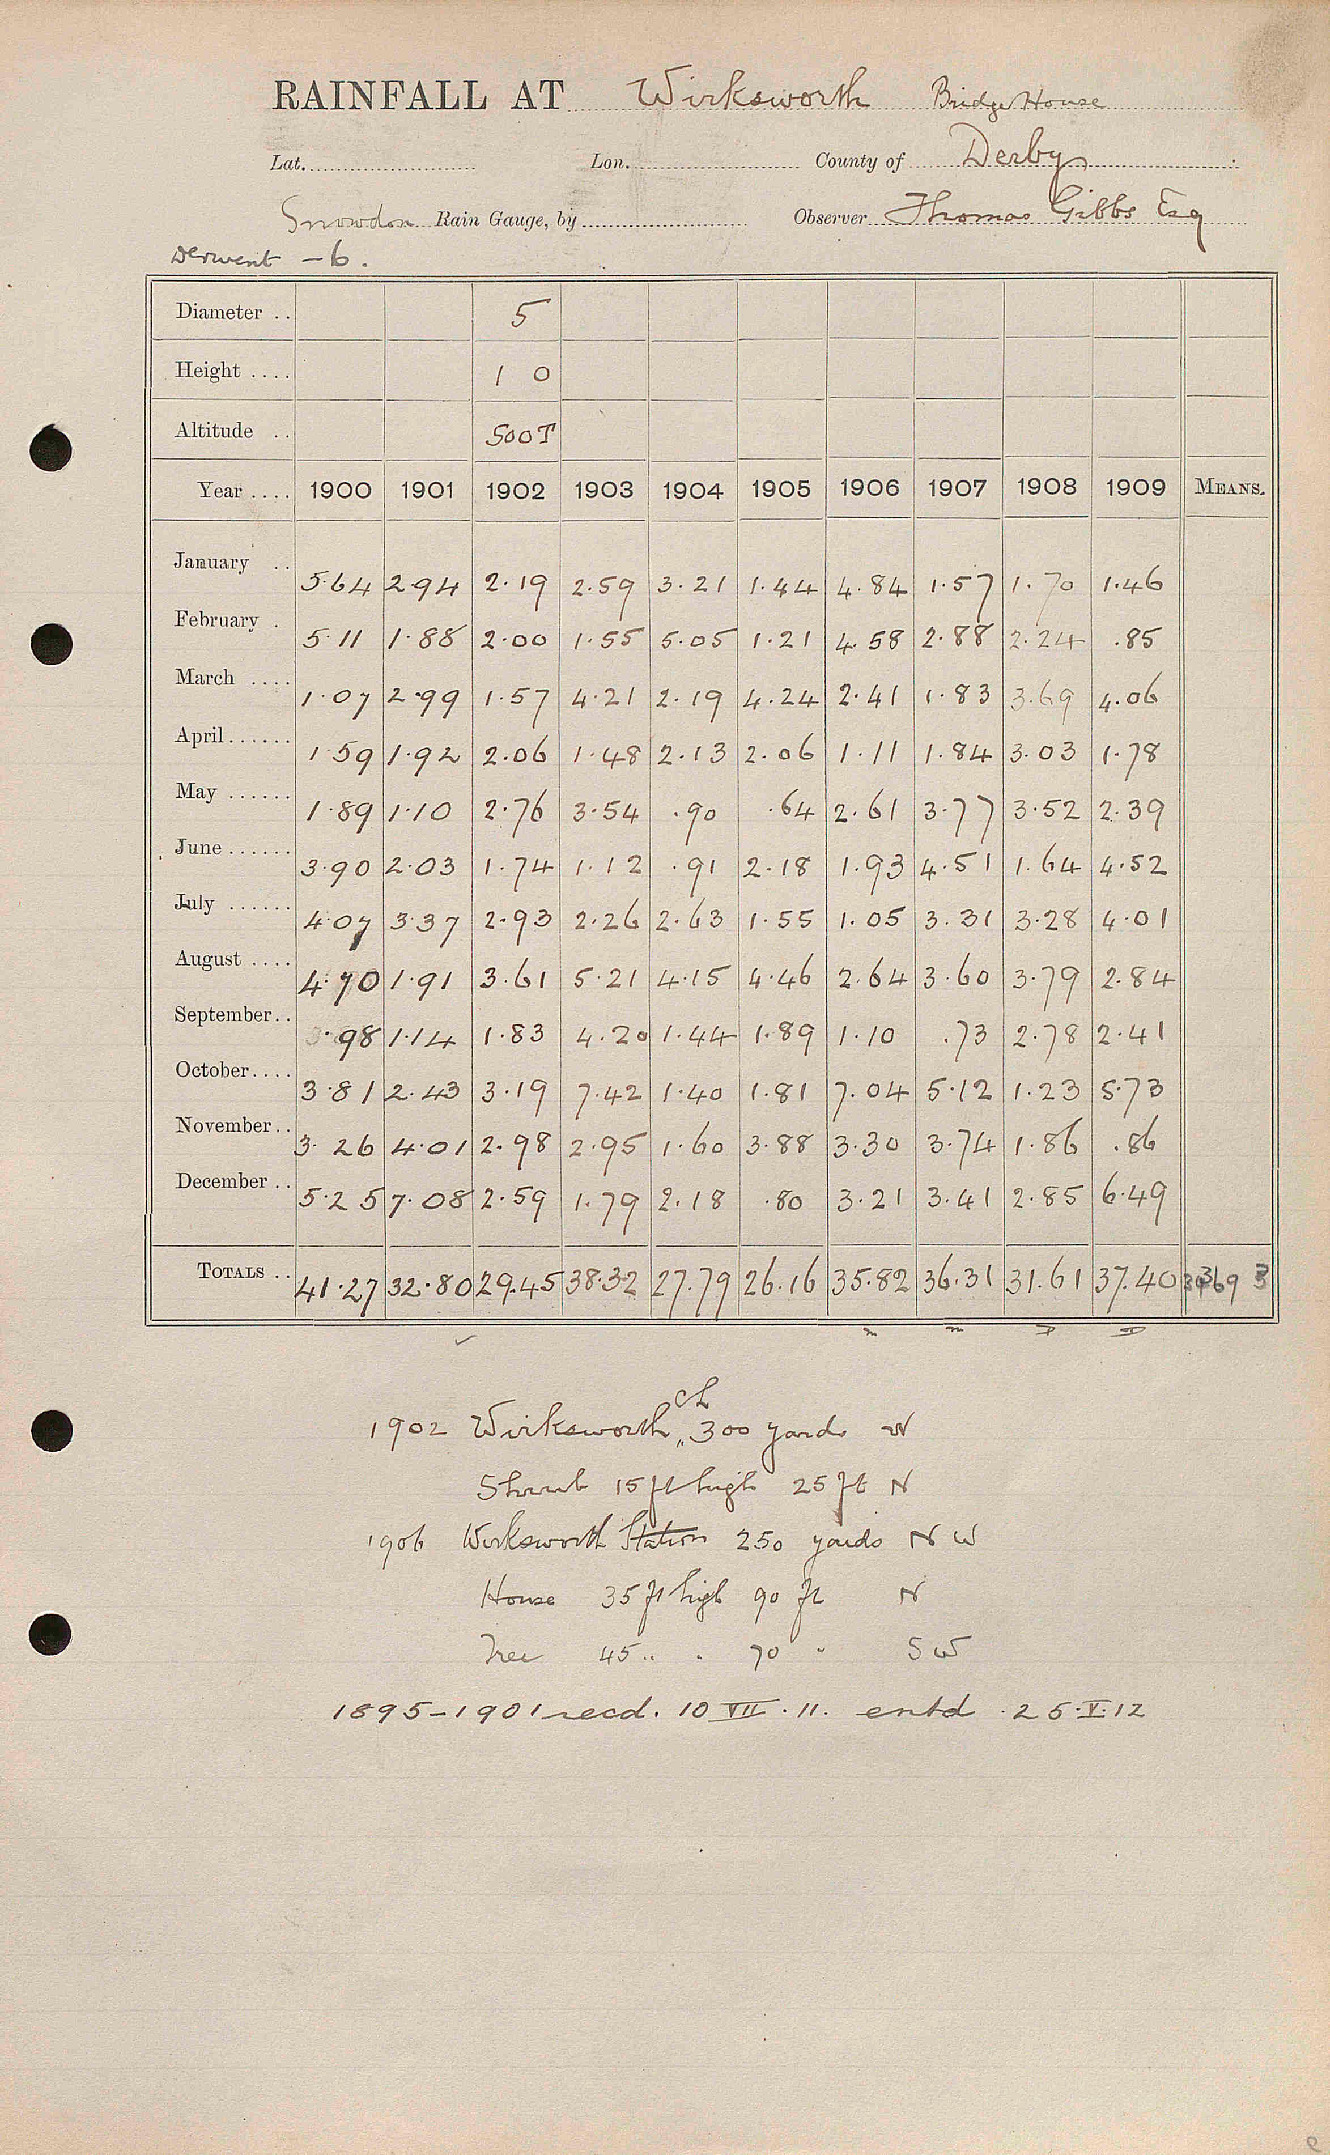 RAINFALL AT Wirksworth Bridge House
Lat. Lon. County of Derby
Snowdon Rain Gauge, by Observer Thomas Gibbs Esq
Derwent - 6.
Diameter .. 5
Height .... 1 0
Altitude .. 500T
Year .... 1900 1901 1902 1903 1904 1905 1906 1907 1908 1909 MEANS.
January .. 5.64 2.94 2.19 2.59 3.21 1.44 4.84 1.57 1.70 1.46
February . 5.11 1.88 2.00 1.55 5.05 1.21 4.58 2.88 2.24 .85
March .... 1.07 2.99 1.57 4.21 2.19 4.24 2.41 1.83 3.69 4.06
April...... 1.59 1.92 2.06 1.48 2.13 2.06 1.11 1.84 3.03 1.78
May ...... 1.89 1.10 2.76 3.54 .90 .64 2.61 3.77 3.52 2.39
June ...... 3.90 2.03 1.74 1.12 .91 2.18 1.93 4.51 1.64 4.52
July ...... 4.07 3.37 2.93 2.26 2.63 1.55 1.05 3.31 3.28 4.01
August .... 4.70 1.91 3.61 5.21 4.15 4.46 2.64 3.60 3.79 2.84
September.. .98 1.14 1.83 4.20 1.44 1.89 1.10 .73 2.78 2.41
October.... 3.81 2.43 3.19 7.42 1.40 1.81 7.04 5.12 1.23 5.73
November.. 3.26 4.01 2.98 2.95 1.60 3.88 3.30 3.74 1.86 .86
December .. 5.25 7.08 2.59 1.79 2.18 .80 3.21 3.41 2.85 6.49
TOTALS .. 41.27 32.80 29.45 38.32 27.79 26.16 35.82 36.31 31.61 37.40
1902 Wirksworth Ch 300 yards W
Shrub 15 ft high 25 ft N
1906 Wirksworth Station 250 yards N W
House 35 ft high 90 ft N
Tree 45 " " 70 " S W
1895-1901 recd. 10 VII. 11. entd 25.V.12